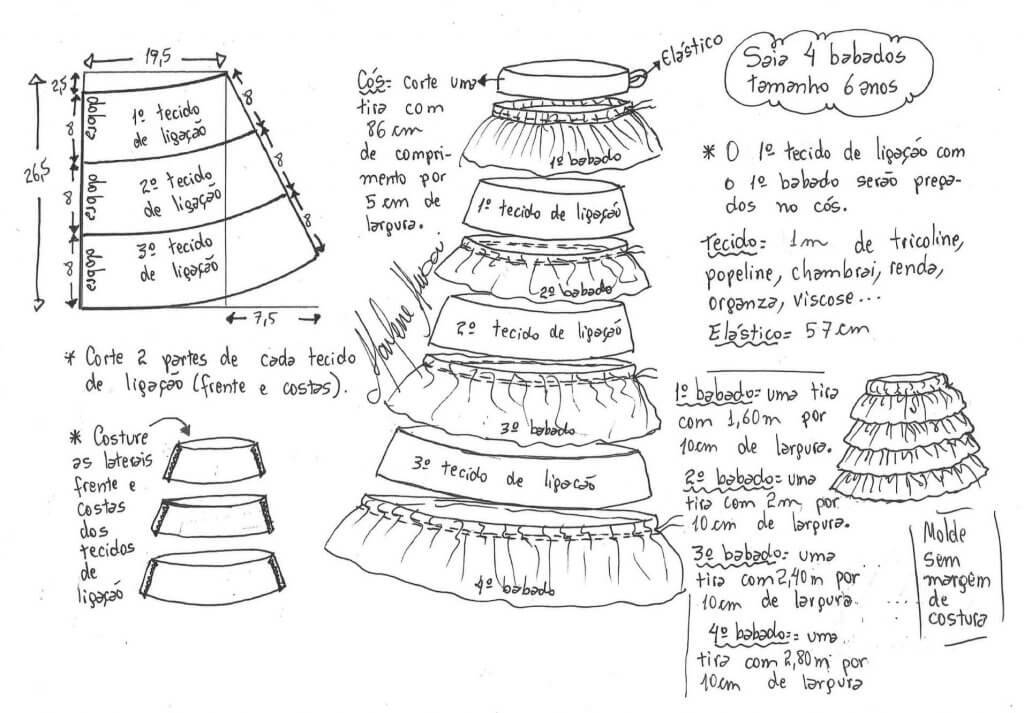 19,5
2,5
dobra
1º tecido
de ligação
8
8
26,5
8
dobra
2º tecido
de ligação
8
8
dobra
3º tecido
de ligação
8
7,5
* Corte 2 partes de cada tecido
de ligação (frente e costas).
* Costure
as laterais
frente e
costas
dos
tecidos
de
ligação
Cós= Corte uma
tira com
86 cm
de compri-
mento por
5 cm de
largura.
Elástico
1º babado
1º tecido de ligação
2º babado
2º tecido de ligação
3º babado
3º tecido de ligação
4º babado
Marlene Mukai
Saia 4 babados
tamanho 6 anos
* O 1º tecido de ligação com
o 1º babado serão prega-
dos no cós.
Tecido= 1m de tricoline,
popeline, chambrai, renda,
organza, viscose...
Elástico= 57cm
1º babado= uma tira
com 1,60m por
10cm de largura.
2º babado= uma
tira com 2m por
10cm de largura.
3º babado= uma
tira com 2,40m por
10cm de largura.
4º babado= uma
tira com 2,80m por
10cm de largura
Molde
sem
margem
de
costura